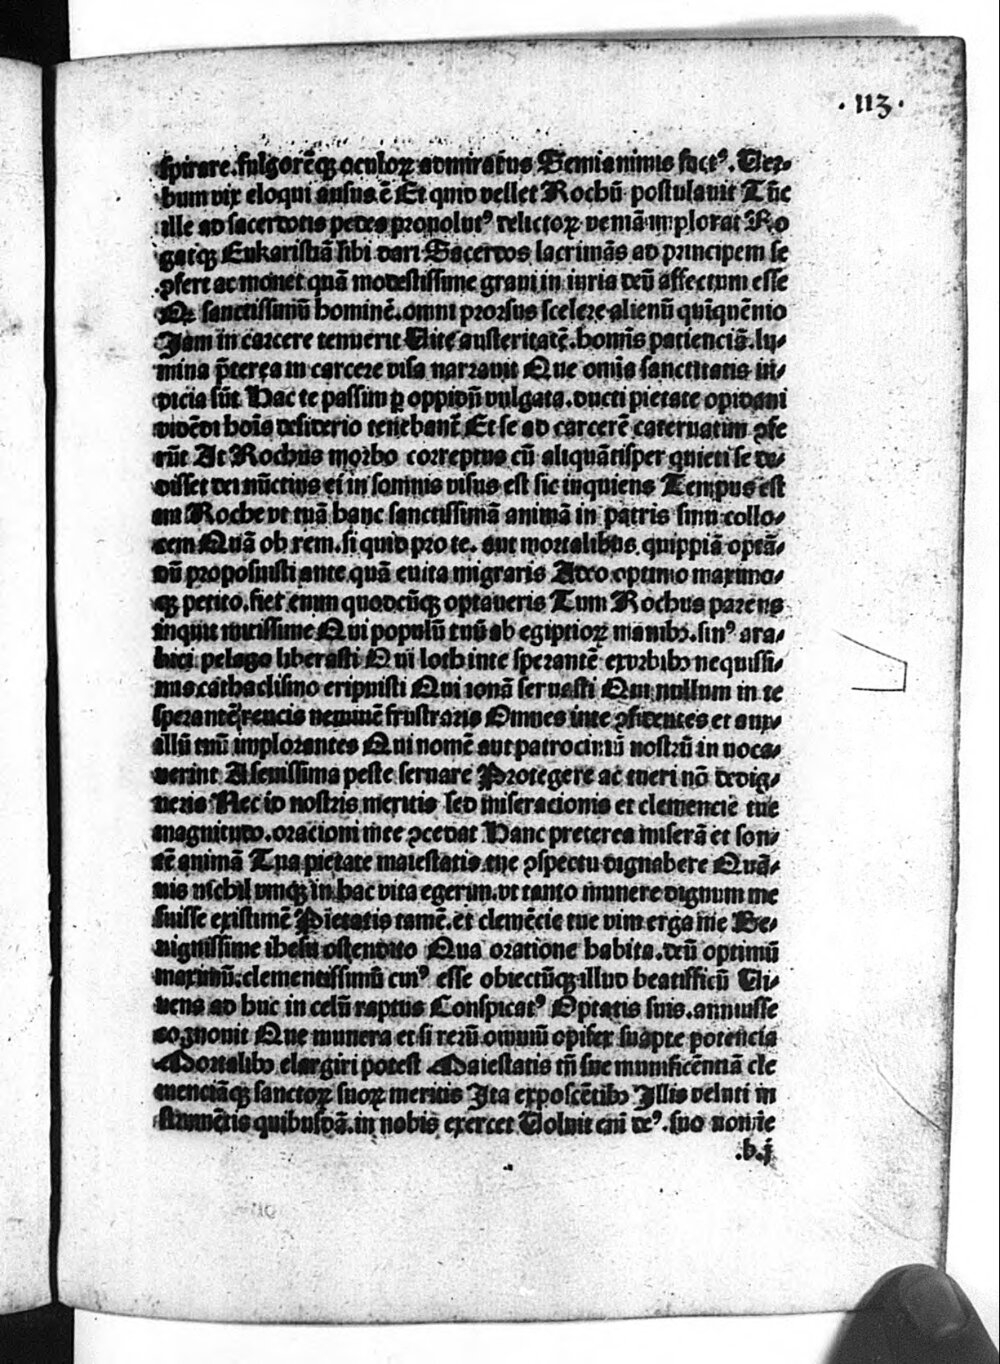 ·113·
spirare.fulgorēq̃ꝫ oculoꝝ admiratus Semianimis factꝰ. Uer-
bum vix eloqui ausus ē Et quid vellet Rochū postulauit Tūc
ille ad sacerdotis pedes prouolutꝰ relictoꝝ veniā implorat Ro
gatqꝫ Eukaristiā sibi dari Sacerdos lacrimās ad principem se
ꝓfert ac monet quā modestissime graui in iuria deū affectum esse
sanctissimū hominē.omni prorsus scelere alienū quīquēnio
Jam in carcere tenuerit Uite austeritatē.hominis patienciā.lu-
mina p̄terea in carcere visa narrauit Que omīa sanctitatis in-
dicia sūt Hac te passim ꝑ oppidū vulgata.ducti pietate opidani
vidēdi hoīs desiderio tenebant Et se ad carcerē cateruatim ꝯfe
rūt At Rochus morbo correptus cū aliquātisper quieti se de-
disset dei nūctius ei in somnis visus est sic inquiens Tempus est
am Roche vt tuā hanc sanctissimā animā in patris sinu collo-
cem Quā ob rem.si quid pro te. aut mortalibus quippiā optā-
dū proposuisti ante quā euita migraris Adeo optimo maximo-
qꝫ petito.fiet enim quodcūqꝫ optaueris Tum Rochus parens
inquit mitissime Qui populū tuū ab egiptioꝝ manibꝰ.sinꝰ ara-
bici pelago liberasti Qui loth inte sperantē exvrbibꝰ nequissi-
mis cathaclismo eripuisti Qui ionā seruasti Qui nullum in te
sperantē reiicis neminē frustraris Omnes inte ꝯfitentes et aux-
iliū tuū implorantes Qui nomē aut patrociniū nostrū in uoca-
uerint A seuissima peste seruare Protegere ac tueri nō dedig-
neris Nec id nostris meritis sed miseracionis et clemencie tue
magnitudo.oracioni mee ꝯcedat Hanc preterea miserā et son-
tē animā Tua pietate maiestatis tue ꝯspectu dignabere Quā-
uis nichil vmqꝫ in hac vita egerim.vt tanto munere dignum me
fuisse existimē Pietatis tamē.et clemēcie tue vim erga me Be-
nignissime ihesu ostendito Qua oratione habita.deū optimū
maximū.clementissimū cuiꝰ esse obiectūqꝫ illud beatifficū Ui-
uens ad huc in celū raptus Conspicatꝰ Optatis suis.annuisse
cognouit Que munera et si rerū omniū opifex suapte potencia
Mortalibꝰ elargiri potest Maiestatis tn̄ sue munificēntiā cle
menciāqꝫ sanctoꝝ suoꝝ meritis Jta exposcētibꝰ Jllis veluti in
strumētis quibusdā.in nobis exercet Uoluit eni deꝰ.suo nomīe
.b.j